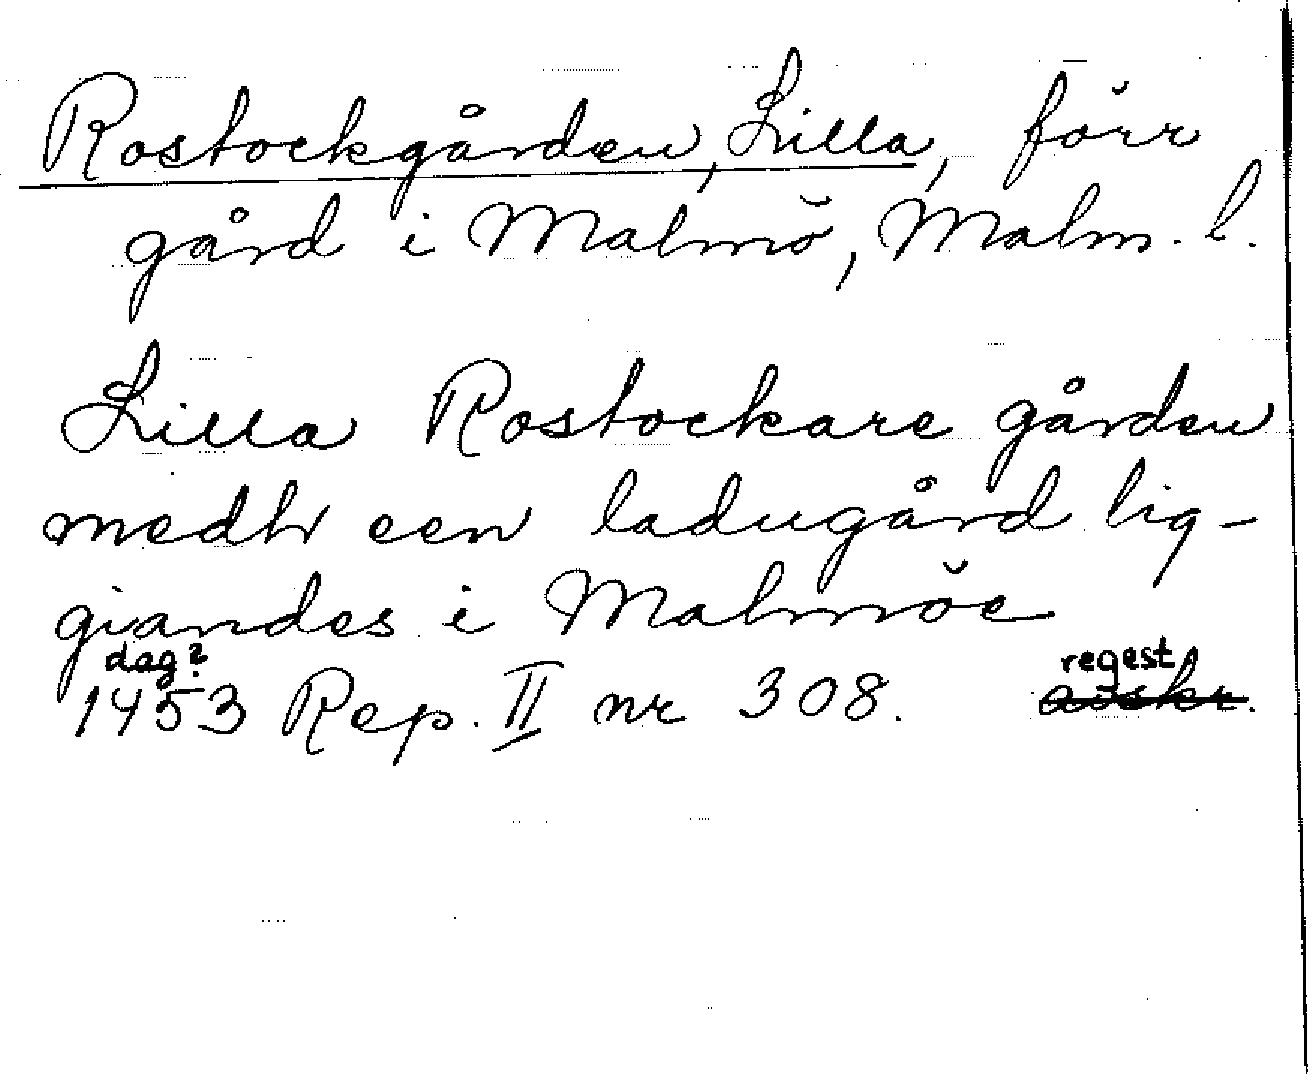 Rostockgården, Lilla, förr
gård i Malmö, Malm. l.
Lilla Rostockare gården
medh een ladugård lig-
giandes i Malmöe
dag? regest
1453 Rep. II nr 308. avskr.